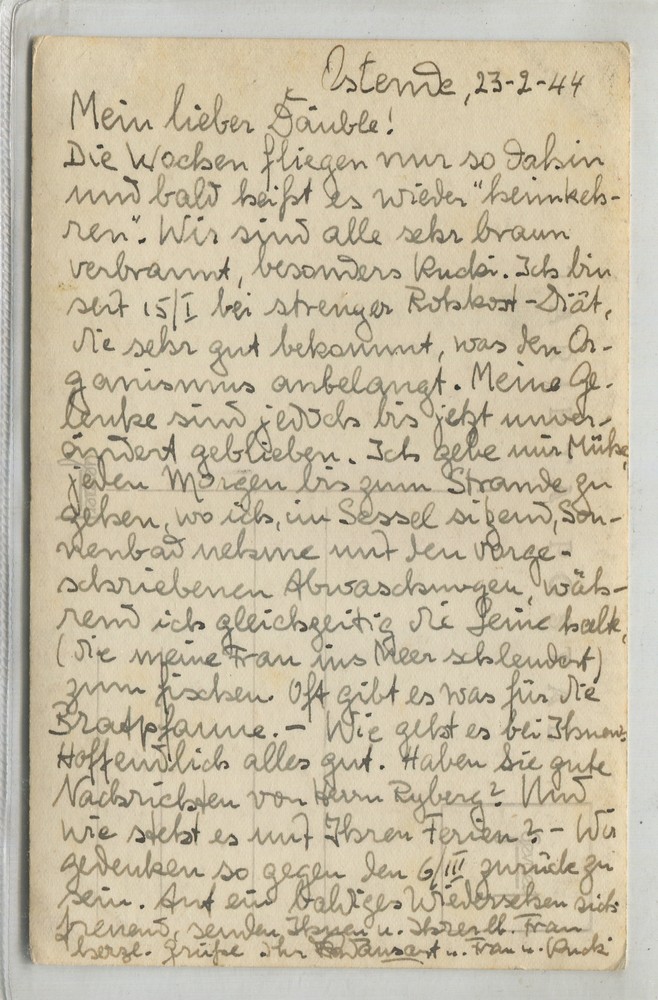 Ostende, 23-2-44
Mein lieber Däuble!
Die Wochen fliegen nur so dahin
und bald heißt es wieder "heimkeh-
ren". Wir sind alle sehr braun
verbrannt, besonders Kucki. Ich bin
seit 15/I bei strenger Rohkost-Diät,
die sehr gut bekommt, was den Or-
ganismus anbelangt. Meine Ge-
lenke sind jedoch bis jetzt unver-
ändert geblieben. Ich gebe mir Mühe,
jeden Morgen bis zum Strande zu
gehen, wo ich, im Sessel sitzend, Son-
nenbad nehme mit den vorge-
schriebenen Abwaschungen, wäh-
rend ich gleichzeitig die Leine halte,
(die meine Frau ins Meer schleudert)
zum fischen. Oft gibt es was für die
Bratpfanne. – Wie geht es bei Ihnen?
Hoffendlich alles gut. Haben Sie gute
Nachrichten von Herrn Ryberg? Und
wie steht es mit Ihren Ferien? – Wir
gedenken so gegen den 6/III zurück zu
sein. Auf ein baldiges Wiedersehen sich
freuend, senden Ihnen u. Ihrer lb. Frau
herzl. Grüße Ihr u. Frau u. Kucki